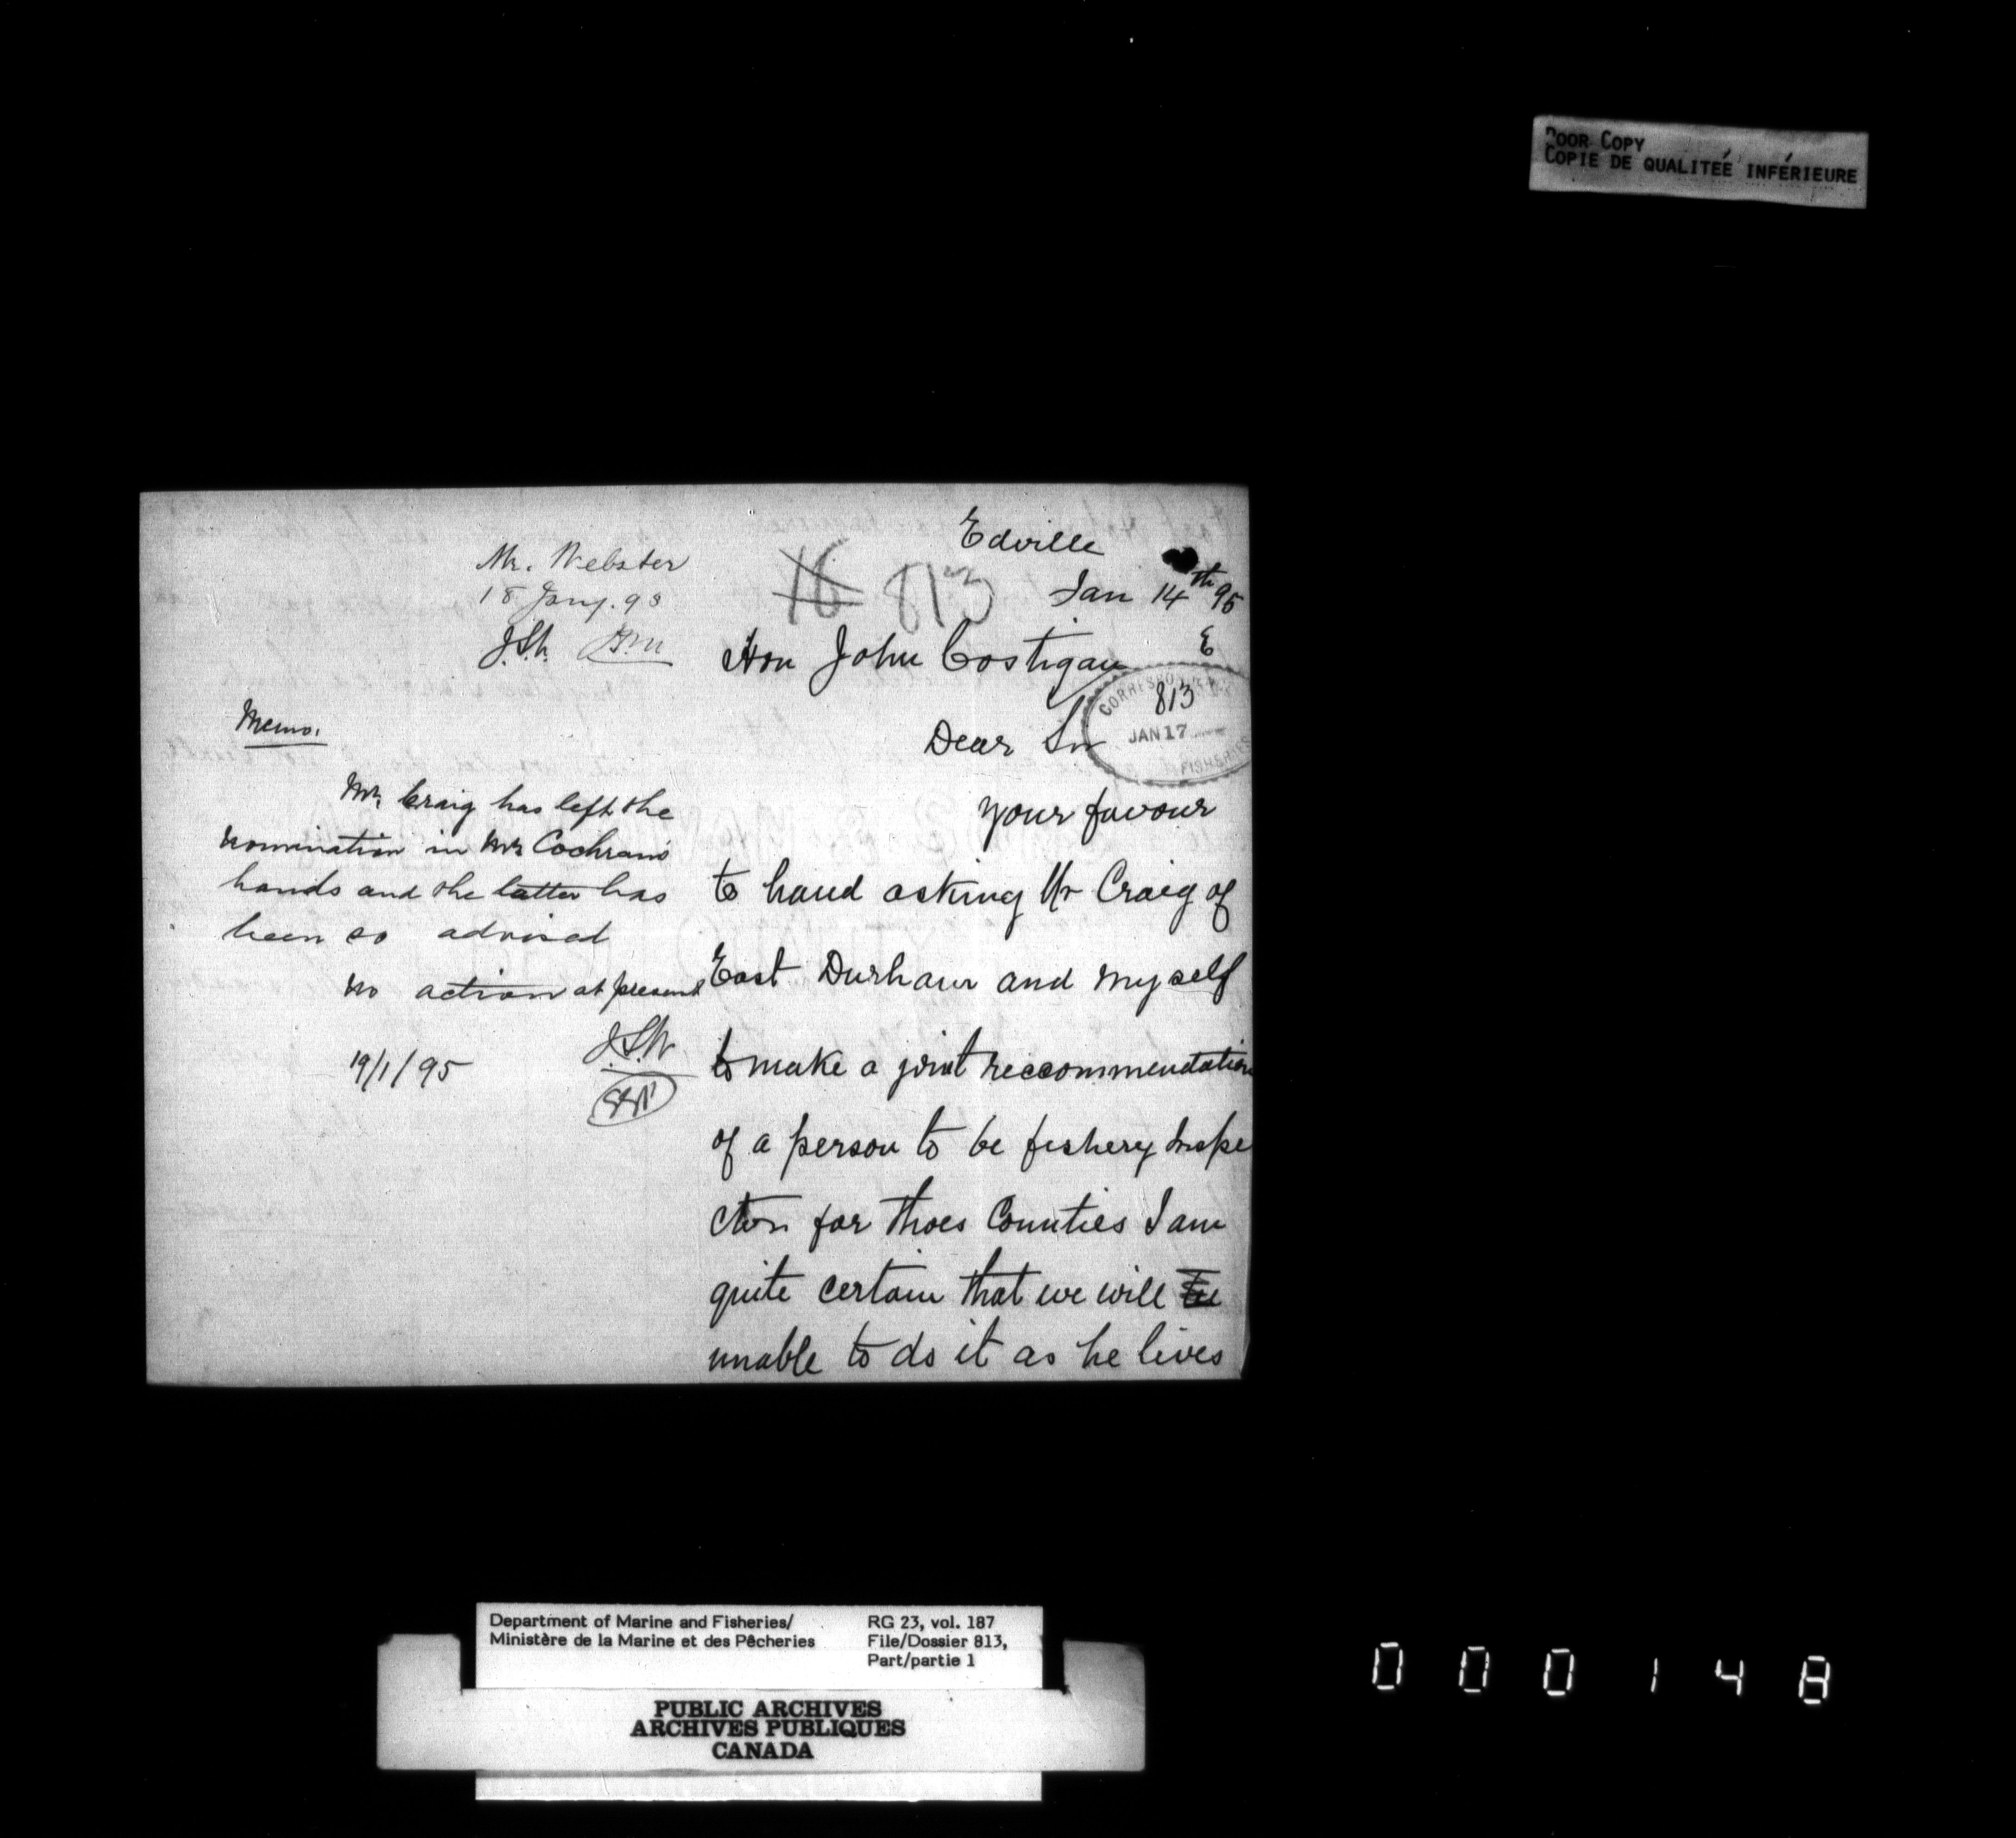 Poor Copy
Copie de qualiteé inférieure
Edville
Jan 14th 95
16 813
E
Mr. Webster
18 Jany. 98
Hon John Costigan
CORRESPONDENCE
813
JAN 17
FISHERIES
Dear Sir
your favour
to hand asking Mr Craig of
East Durham and myself
to make a joint reccommendation
of a person to be fishery Inspe
ctor for thoes Counties I am
quite certain that we will be
unable to do it as he lives
Memo.
Mr Craig has left the
nomination in Mr Cochran's
hands and the latter has
been so advised
No action at present
19/1/95
Department of Marine and Fisheries/
Ministère de la Marine et des Pêcheries
RG 23, vol. 187
File/Dossier 813,
Part/partie 1
PUBLIC ARCHIVES
ARCHIVES PUBLIQUES
CANADA
000148